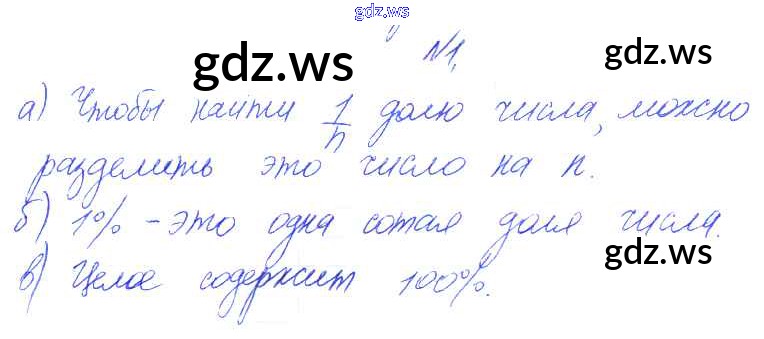 gdz.ws
№1.
gdz.ws
gdz.ws
а) Чтобы найти 1/n долю числа, можно
разделить это число на n.
б) 1% - это одна сотая доля числа.
gdz.ws
в) Целое содержит 100%.